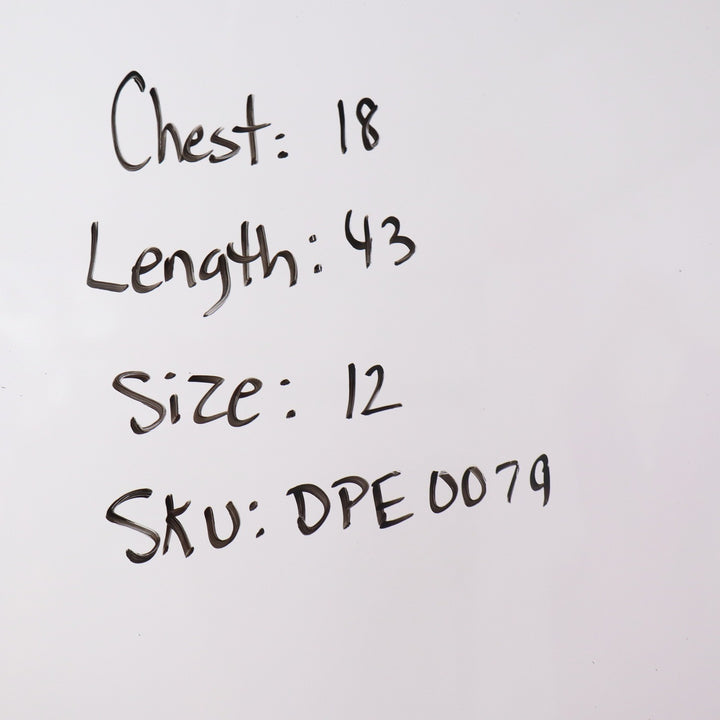 Chest: 18
Length: 43
Size: 12
SKU: DPE 0079